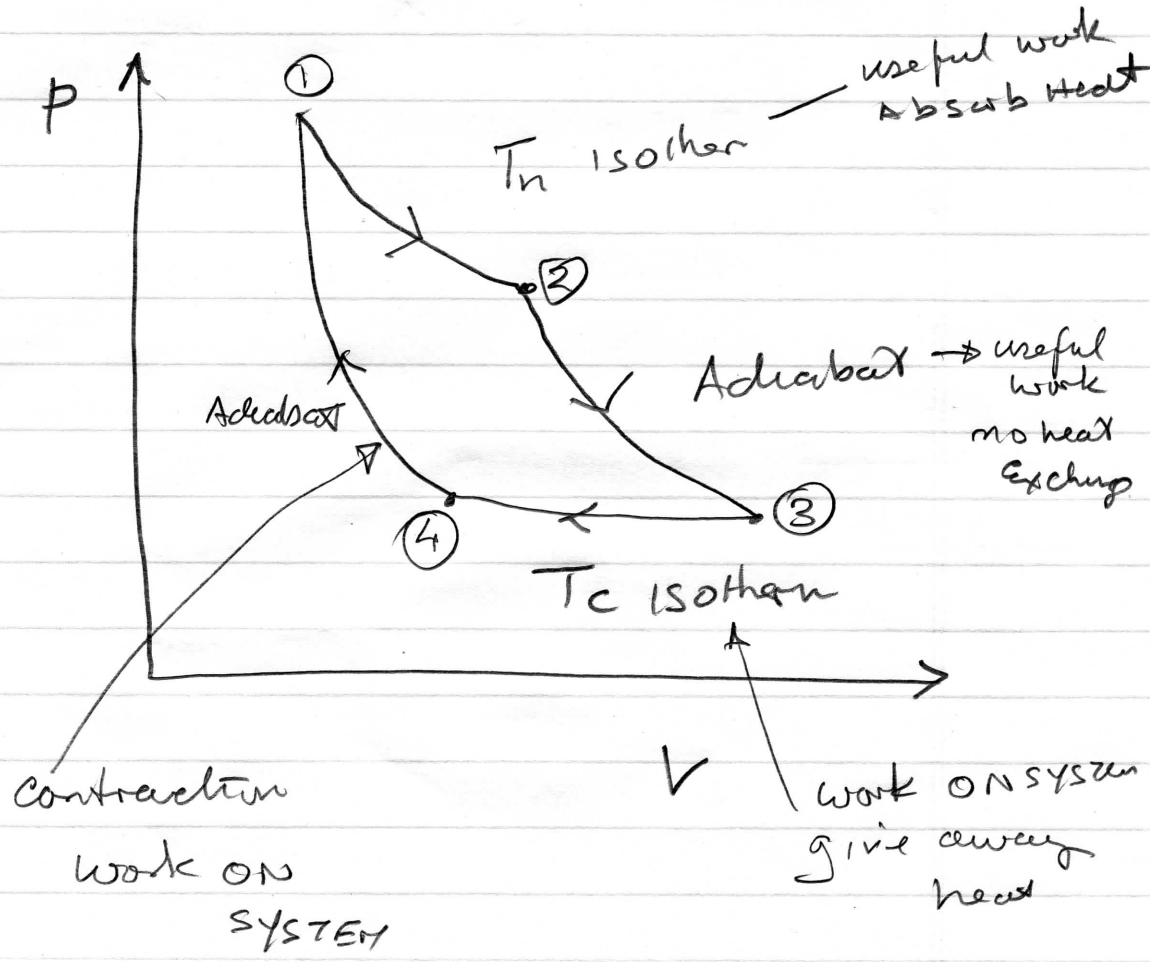 P
①
Th isotherm
useful work
Absorb Heat
②
Adiabat → useful
work
no heat
Exchng
Adiabat
④
③
Tc isotherm
V
contraction
work ON
SYSTEM
work ON SYSTEM
give away
heat